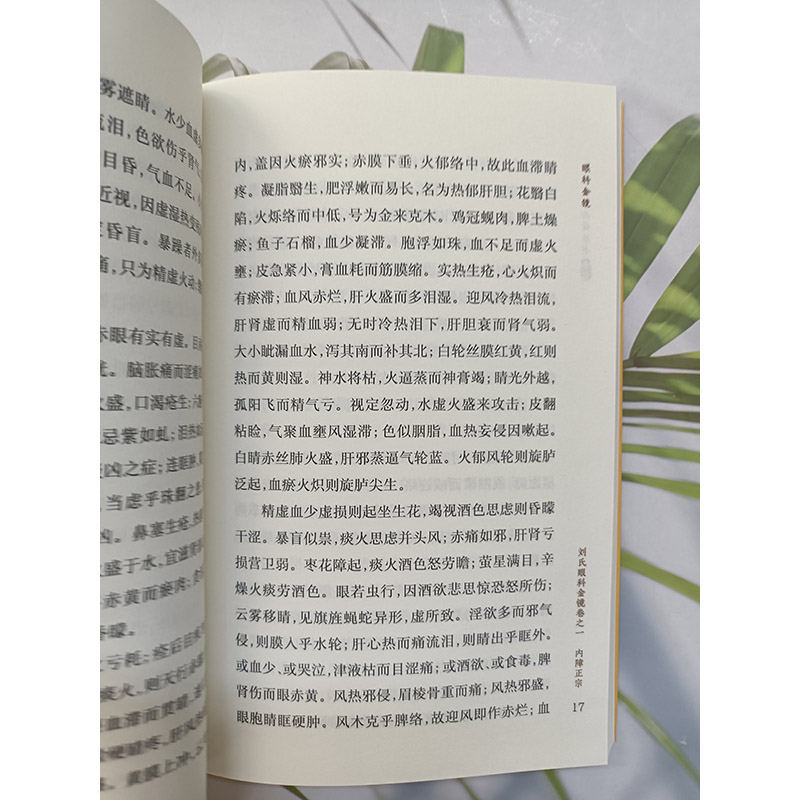 雾遮睛。水少血
泪,色欲伤乎肾气
目昏,气血不足,
近视,因虚湿热变
昏盲。暴躁者外
痛,只为精虚火动
眼有实有虚,目
脑胀痛而涩
盛,口渴疮生;六
忌紫如虬;泪热
凶之症;连眶肿
当虑乎珠翻之
鼻塞生疮,热
盛于水,宜滋
赤黄而瘀肉;
昏矇。
亏耗;
痰火,则天行
血滞而
硬疼,肝风
黄膜上冲,
内,盖因火瘀邪实;赤膜下垂,火郁络中,故此血滞睛
疼。凝脂翳生,肥浮嫩而易长,名为热郁肝胆;花翳白
陷,火烁络而中低,号为金来克木。鸡冠蚬肉,脾土燥
瘀;鱼子石榴,血少凝滞。胞浮如珠,血不足而虚火
壅;皮急紧小,膏血耗而筋膜缩。实热生疮,心火炽而
有瘀滞;血风赤烂,肝火盛而多泪湿。迎风冷热泪流,
肝肾虚而精血弱;无时冷热泪下,肝胆衰而肾气弱。
大小眦漏血水,泻其南而补其北;白轮丝膜红黄,红则
热而黄则湿。神水将枯,火逼蒸而神膏竭;睛光外越,
孤阳飞而精气亏。视定忽动,水虚火盛来攻击;皮翻
粘睑,气聚血壅风湿滞;色似胭脂,血热妄侵因嗽起。
白睛赤丝肺火盛,肝邪蒸逼气轮蓝。火郁风轮则旋胪
泛起,血瘀火炽则旋胪尖生。
精虚血少虚损则起坐生花,竭视酒色思虑则昏矇
干涩。暴盲似祟,痰火思虑并头风;赤痛如邪,肝肾亏
损营卫弱。枣花障起,痰火酒色怒劳瞻;萤星满目,辛
燥火痰劳酒色。眼若虫行,因酒欲悲思惊恐怒所伤;
云雾移睛,见旗旌蝇蛇异形,虚所致。淫欲多而邪气
侵,则膜入乎水轮;肝心热而痛流泪,则睛出乎眶外。
或血少、或哭泣,津液枯而目涩痛;或酒欲、或食毒,脾
肾伤而眼赤黄。风热邪侵,眉棱骨重而痛;风热邪盛,
眼胞睛眶硬肿。风木克乎脾络,故迎风即作赤烂;血
眼科金镜
刘氏眼科金镜卷之一 内障正宗
17